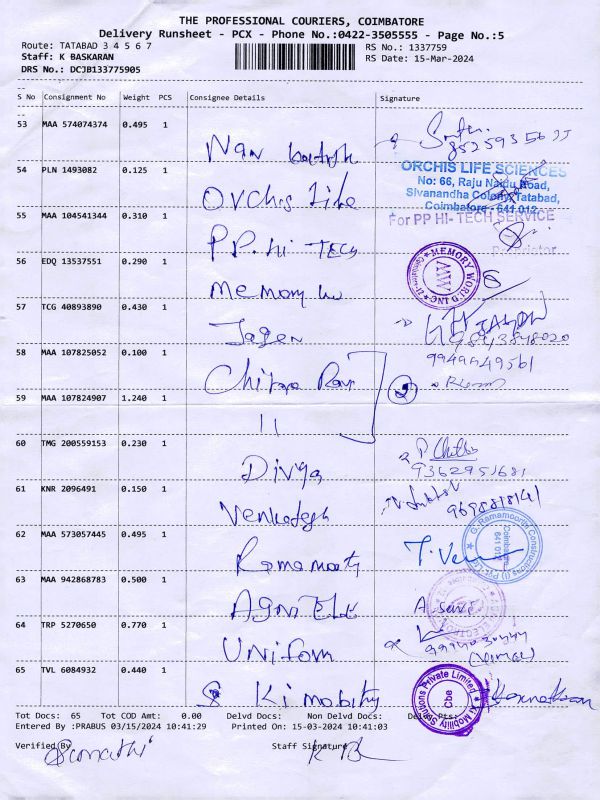 THE PROFESSIONAL COURIERS, COIMBATORE
Delivery Runsheet - PCX - Phone No.:0422-3505555 - Page No.:5
Route: TATABAD 3 4 5 6 7 RS No.: 1337759
Staff: K BASKARAN RS Date: 15-Mar-2024
DRS No.: DCJB133775905
S No Consignment No Weight PCS Consignee Details Signature
53 MAA 574074374 0.495 1
54 PLN 1493082 0.125 1
Orchis Life
ORCHIS LIFE SCIENCES
No: 66, Raju Naidu Road,
Sivanandha Colony, Tatabad,
Coimbatore - 641 012
55 MAA 104541344 0.310 1
P.P. Hi TECh
For PP HI-TECH SERVICE
Proprietor
56 EDQ 13537551 0.290 1
memory w
MEMORY WORLD INC
57 TCG 40893890 0.430 1
Jagen
58 MAA 107825052 0.100 1
Chitra Ravi
59 MAA 107824907 1.240 1
11
2
60 TMG 200559153 0.230 1
Divya
9362951681
61 KNR 2096491 0.150 1
Venkadesh
62 MAA 573057445 0.495 1
Ramamoorty
G. Ramamoorthi Constructions (I) Pvt. Ltd.
Coimbatore 641 012
63 MAA 942868783 0.500 1
64 TRP 5270650 0.770 1
Uniform
65 TVL 6084932 0.440 1
Ki mobility
Ki Mobility Solutions Private Limited
Cbe
Tot Docs: 65 Tot COD Amt: 0.00 Delvd Docs: Non Delvd Docs: Delvd Pts:
Entered By :PRABUS 03/15/2024 10:41:29 Printed On: 15-03-2024 10:41:03
Verified By Staff Signature